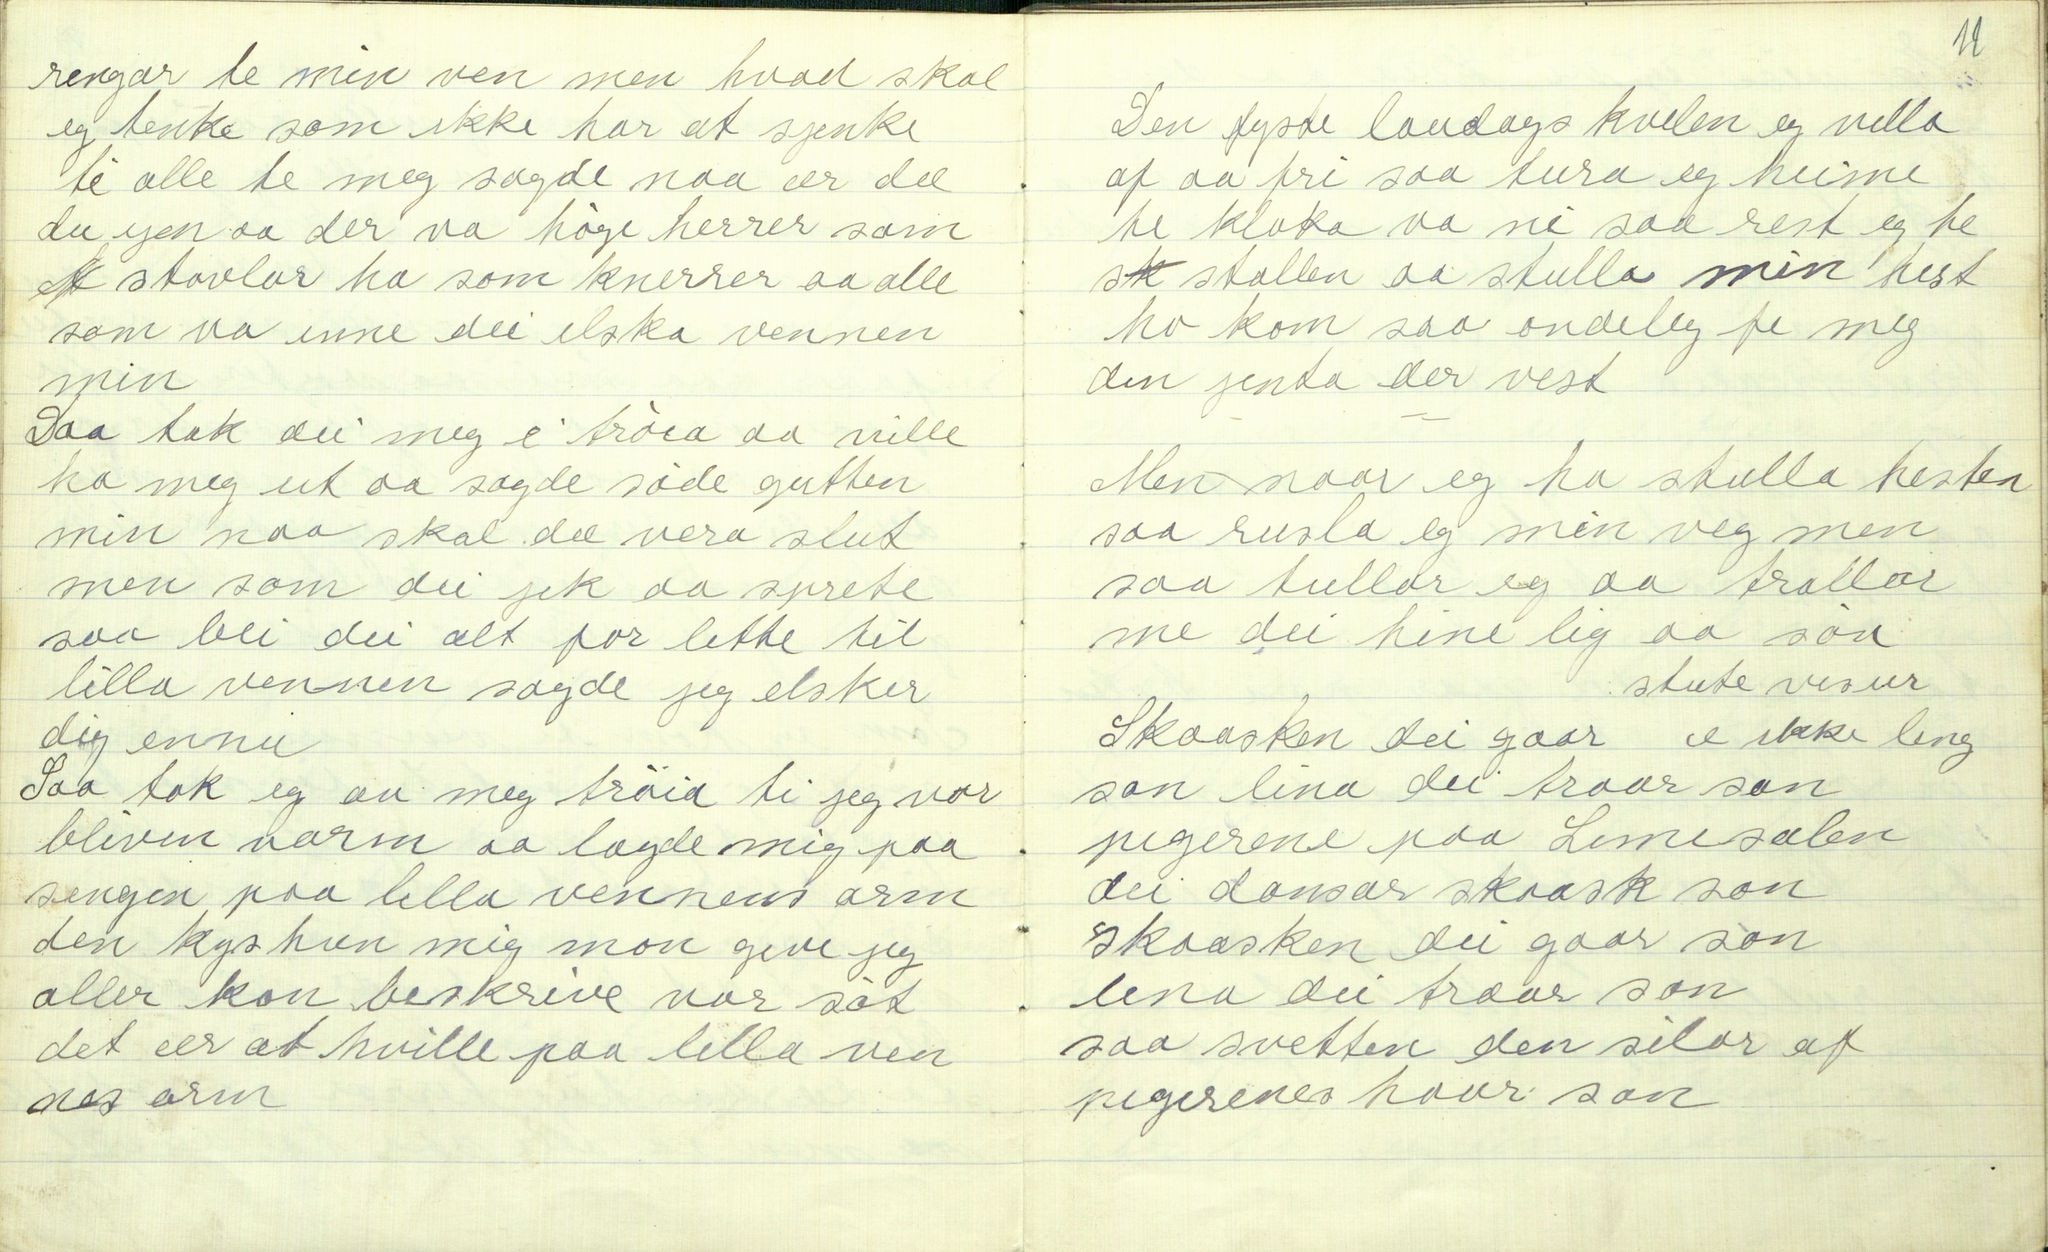 rengar te min ven men hvad skal
eg tenke som ikke har at sjenke
ti alle te meg sagde naa ær dæ
du ijen aa der va høge herrer som
stavlar ha som knerrer aa alle
som va inne dei elska vennen
min
Daa tok dei meg i trøia aa ville
ha meg ut aa sagde søde gutten
min naa skal dæ vera slut
men som dei jek aa sprete
saa blei dei alt for lette til
lilla vennen sagde jeg elsker
dig ennu
Saa tok eg au meg trøia ti jeg var
bliven varm aa lagde mig paa
sengen paa lilla vennens arm
den kys hun mig mon give jeg
aller kan beskrive var søt
det ær at hville paa lilla ven
nes arm
11
Den fyste laudags kvelen eg villa
af aa fri saa tura eg heime
te kloka va ni saa rest eg te
st stallen aa stulla min hest
ho kom saa ondeleg fe meg
den jenta der vest
Men naar eg ha stulla hesten
saa rusla eg min veg men
saa tullar eg aa trallar
me dei hine lig aa søn
stute visur
Skaasken dei gaar æ ikke leng
san lina dei traar san
pigerene paa Limesalen
dei dansar skaask san
Skaasken dei gaar san
lina dei traar san
saa svetten den silar af
pigerenes haar san